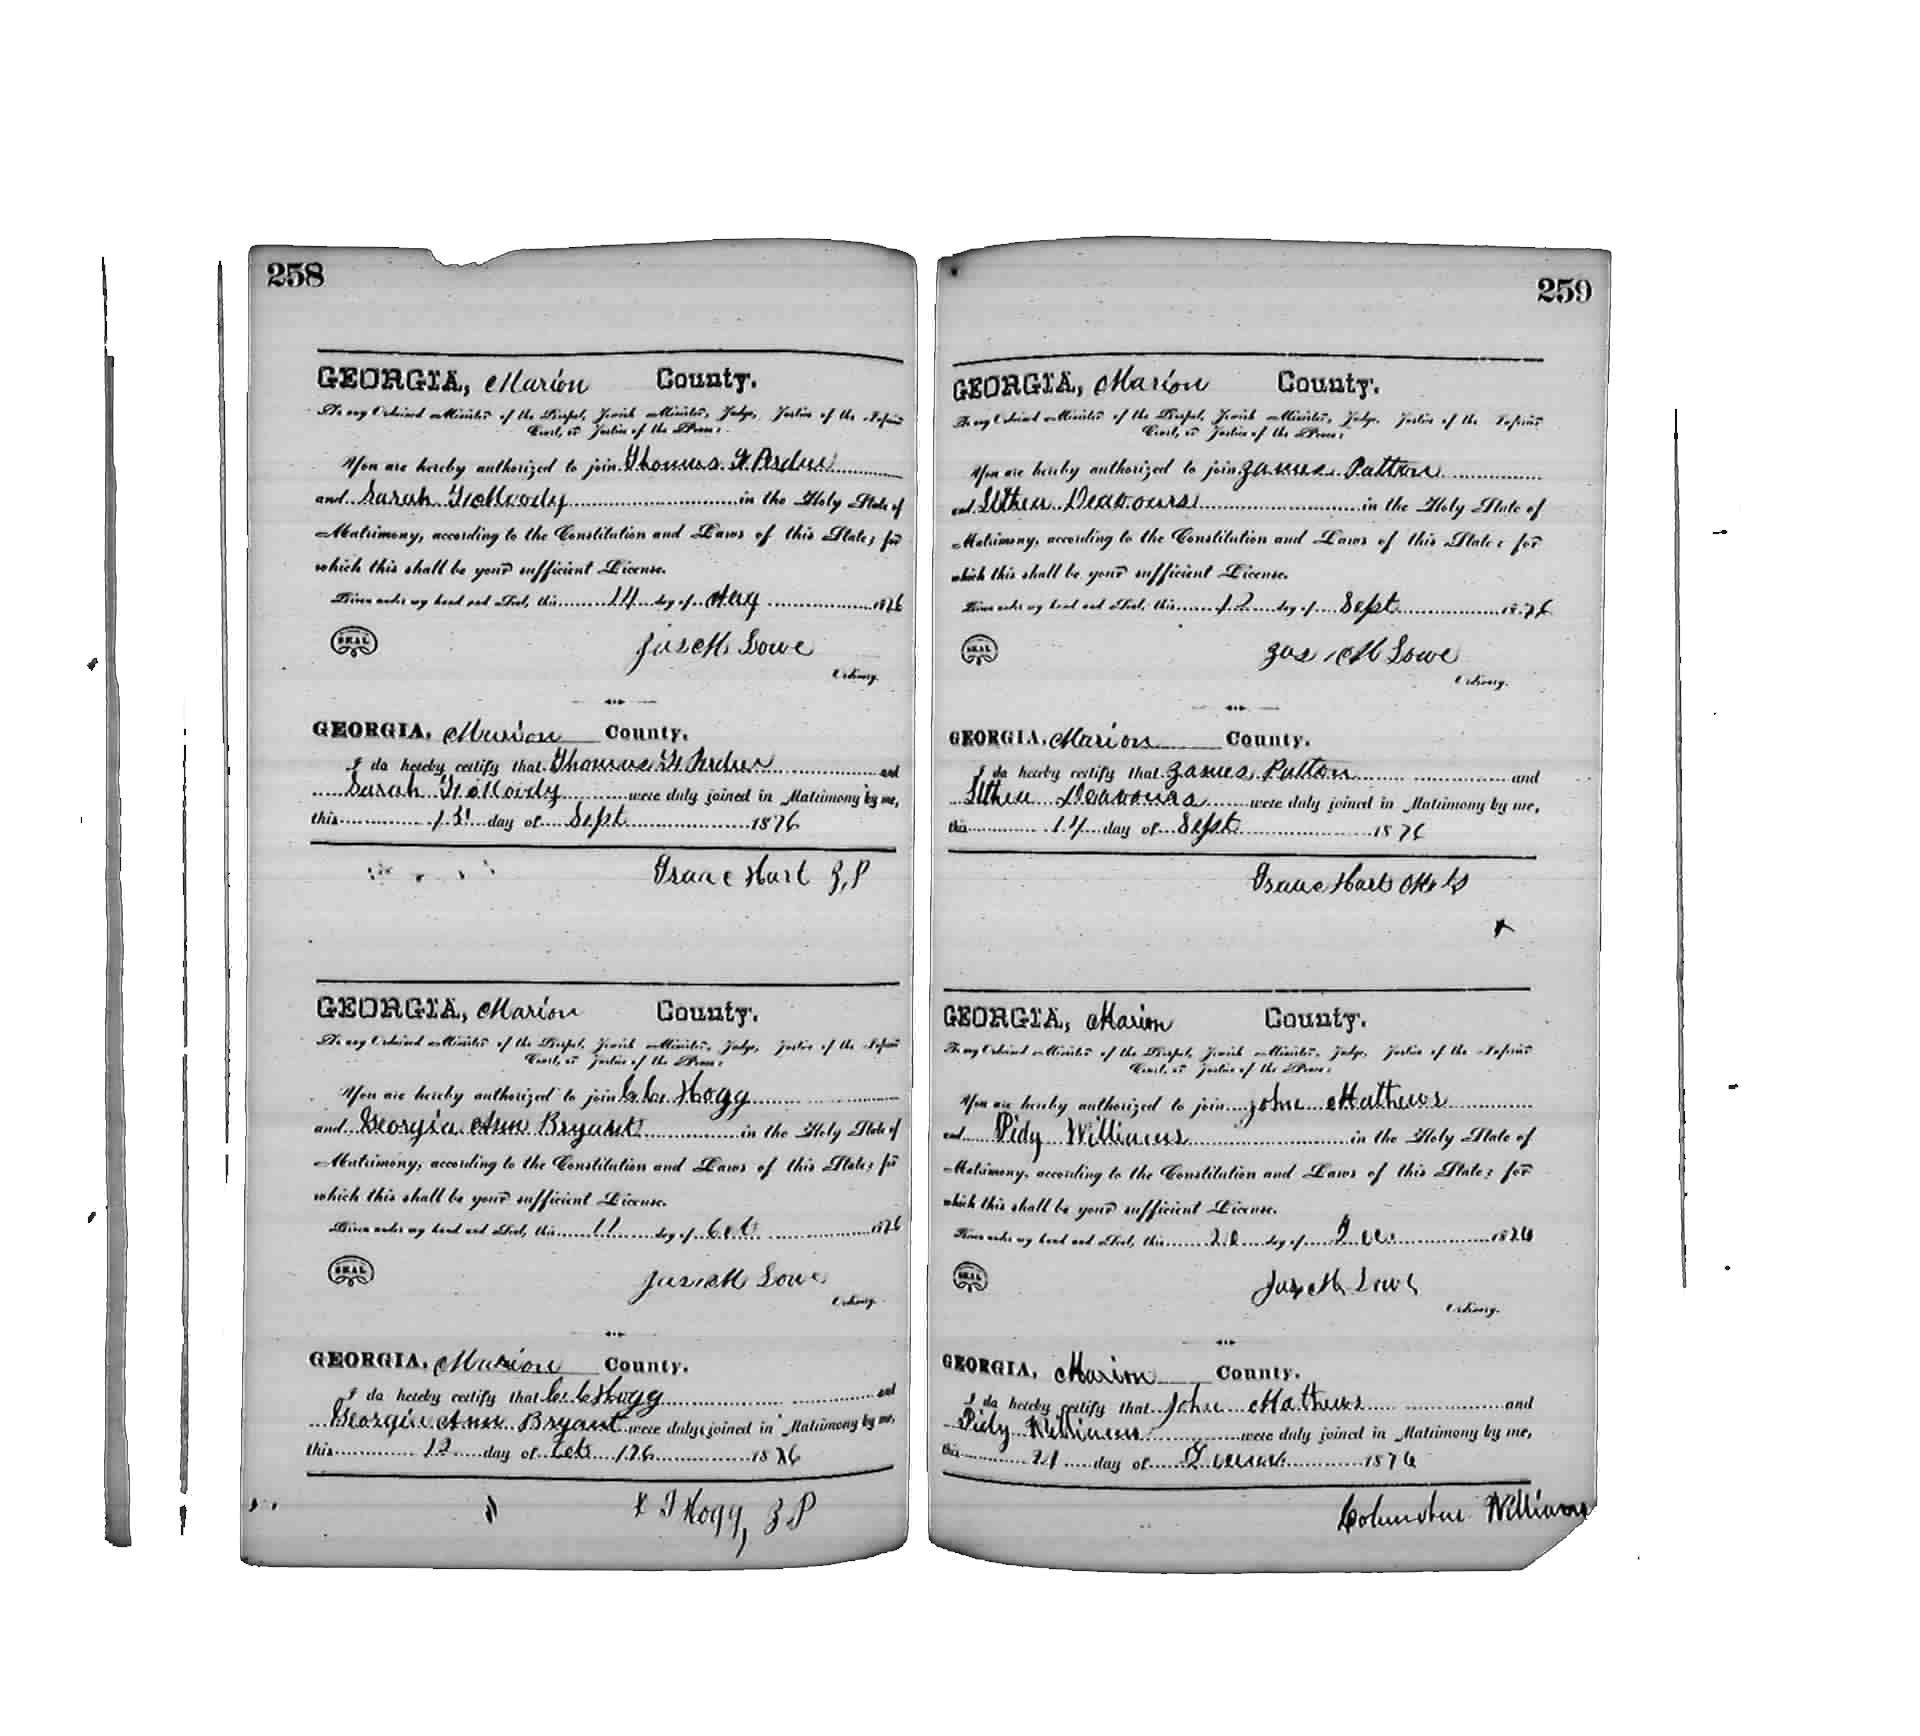 258
GEORGIA, Marion County.
To any Ordained Minister of the Gospel, Jewish Minister, Judge, Justice of the Inferior
Court, or Justice of the Peace:
You are hereby authorized to join Thomas F. Perdue
and Sarah F. Moody in the Holy State of
Matrimony, according to the Constitution and Laws of this State; for
which this shall be your sufficient License.
Given under my hand and Seal, this 14 day of Aug 1876
SEAL
Jas M Lowe
Ordinary.
GEORGIA, Marion County.
I do hereby certify that Thomas F. Perdue and
Sarah F. Moody were duly joined in Matrimony by me,
this day of Sept 1876
Isaac Hart J.P
GEORGIA, Marion County.
To any Ordained Minister of the Gospel, Jewish Minister, Judge, Justice of the Inferior
Court, or Justice of the Peace:
You are hereby authorized to join C. C. Hogg
and Georgia Ann Bryant in the Holy State of
Matrimony, according to the Constitution and Laws of this State; for
which this shall be your sufficient License.
Given under my hand and Seal, this 11 day of Oct 1876
SEAL
Jas M Lowe
Ordinary.
GEORGIA, Marion County.
I do hereby certify that C. C Hogg and
Georgia Ann Bryant were duly joined in Matrimony by me,
this 12 day of Oct 1876
Hogg, J P
259
GEORGIA, Marion County.
To any Ordained Minister of the Gospel, Jewish Minister, Judge, Justice of the Inferior
Court, or Justice of the Peace:
You are hereby authorized to join James Patton
and Sithea Deavours in the Holy State of
Matrimony, according to the Constitution and Laws of this State: for
which this shall be your sufficient License.
Given under my hand and Seal, this 12 day of Sept 1876
SEAL
Jas M Lowe
Ordinary.
GEORGIA, Marion County.
I do hereby certify that James Patton and
Sithea Deavours were duly joined in Matrimony by me,
this 14 day of Sept 1876
Isaac Hart
GEORGIA, Marion County.
To any Ordained Minister of the Gospel, Jewish Minister, Judge, Justice of the Inferior
Court, or Justice of the Peace:
You are hereby authorized to join John Mathews
and Pidy Williams in the Holy State of
Matrimony, according to the Constitution and Laws of this State: for
which this shall be your sufficient License.
Given under my hand and Seal, this 20 day of Dec 1876
SEAL
Jas M Lowe
Ordinary.
GEORGIA, Marion County.
I do hereby certify that John Mathews and
Pidy Williams were duly joined in Matrimony by me,
this 21 day of 1876
Columbus Williams